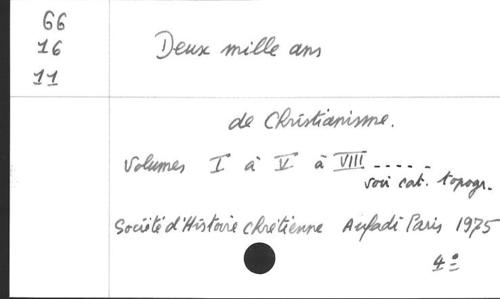 66
16
11
Deux mille ans
de Christianisme.
Volumes I à V à VIII .....
voir cat. topogr.
Société d'Histoire chrétienne Aufadi Paris 1975
4°